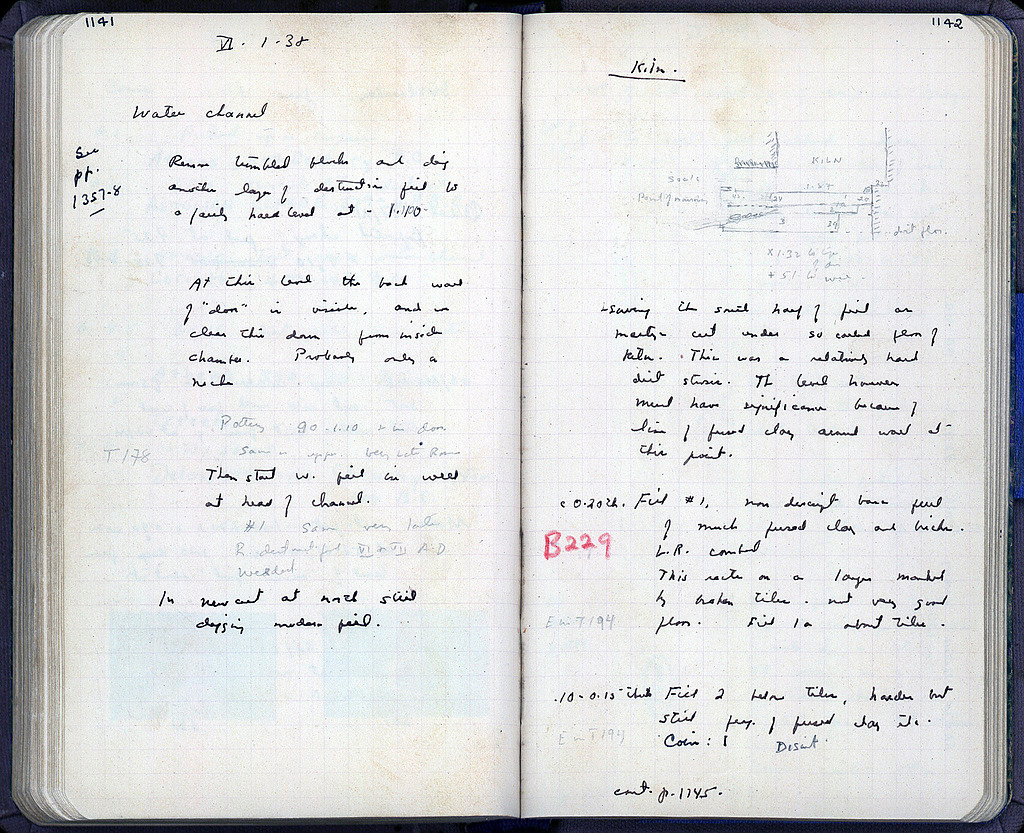 1141
VI. 1-38
Water channel
See
pp.
1357-8
Remove tumbled blocks and dig
another layer of destruction fill to
a fairly hard level at - 1.100-
At this level the back wall
of "door" is visible, and we
clear this down from inside
chamber. Probably only a
niche
Pottery 90-1.10 + in door
T178
same as upper. Very late Roman
Then start w. fill in well
at head of channel.
#1 same very late
R destruct fill VI & VII A.D.
In new cut at north still
digging modern fill.
1142
Kiln.
KILN
Scale
1.57
dirt floor.
Leaving the south half of fill on
cut under so called floor of
kiln. This was a relatively hard
dirt stosis. The level however
must have significance because of
line of fused clay around wall at
this point.
c 0.20th. Fill #1, non descript brown fill
of much fused clay and bricks.
B229
L.R. combed
This rests on a layer marked
by broken tiles. not very good
E in T194
floor. Fill 1a about tiles.
.10-0.15 thick Fill 2 below tiles, harder but
still frag. of fused clay etc.
E in T194
Coin: 1 Disint.
cont. p. 1145.